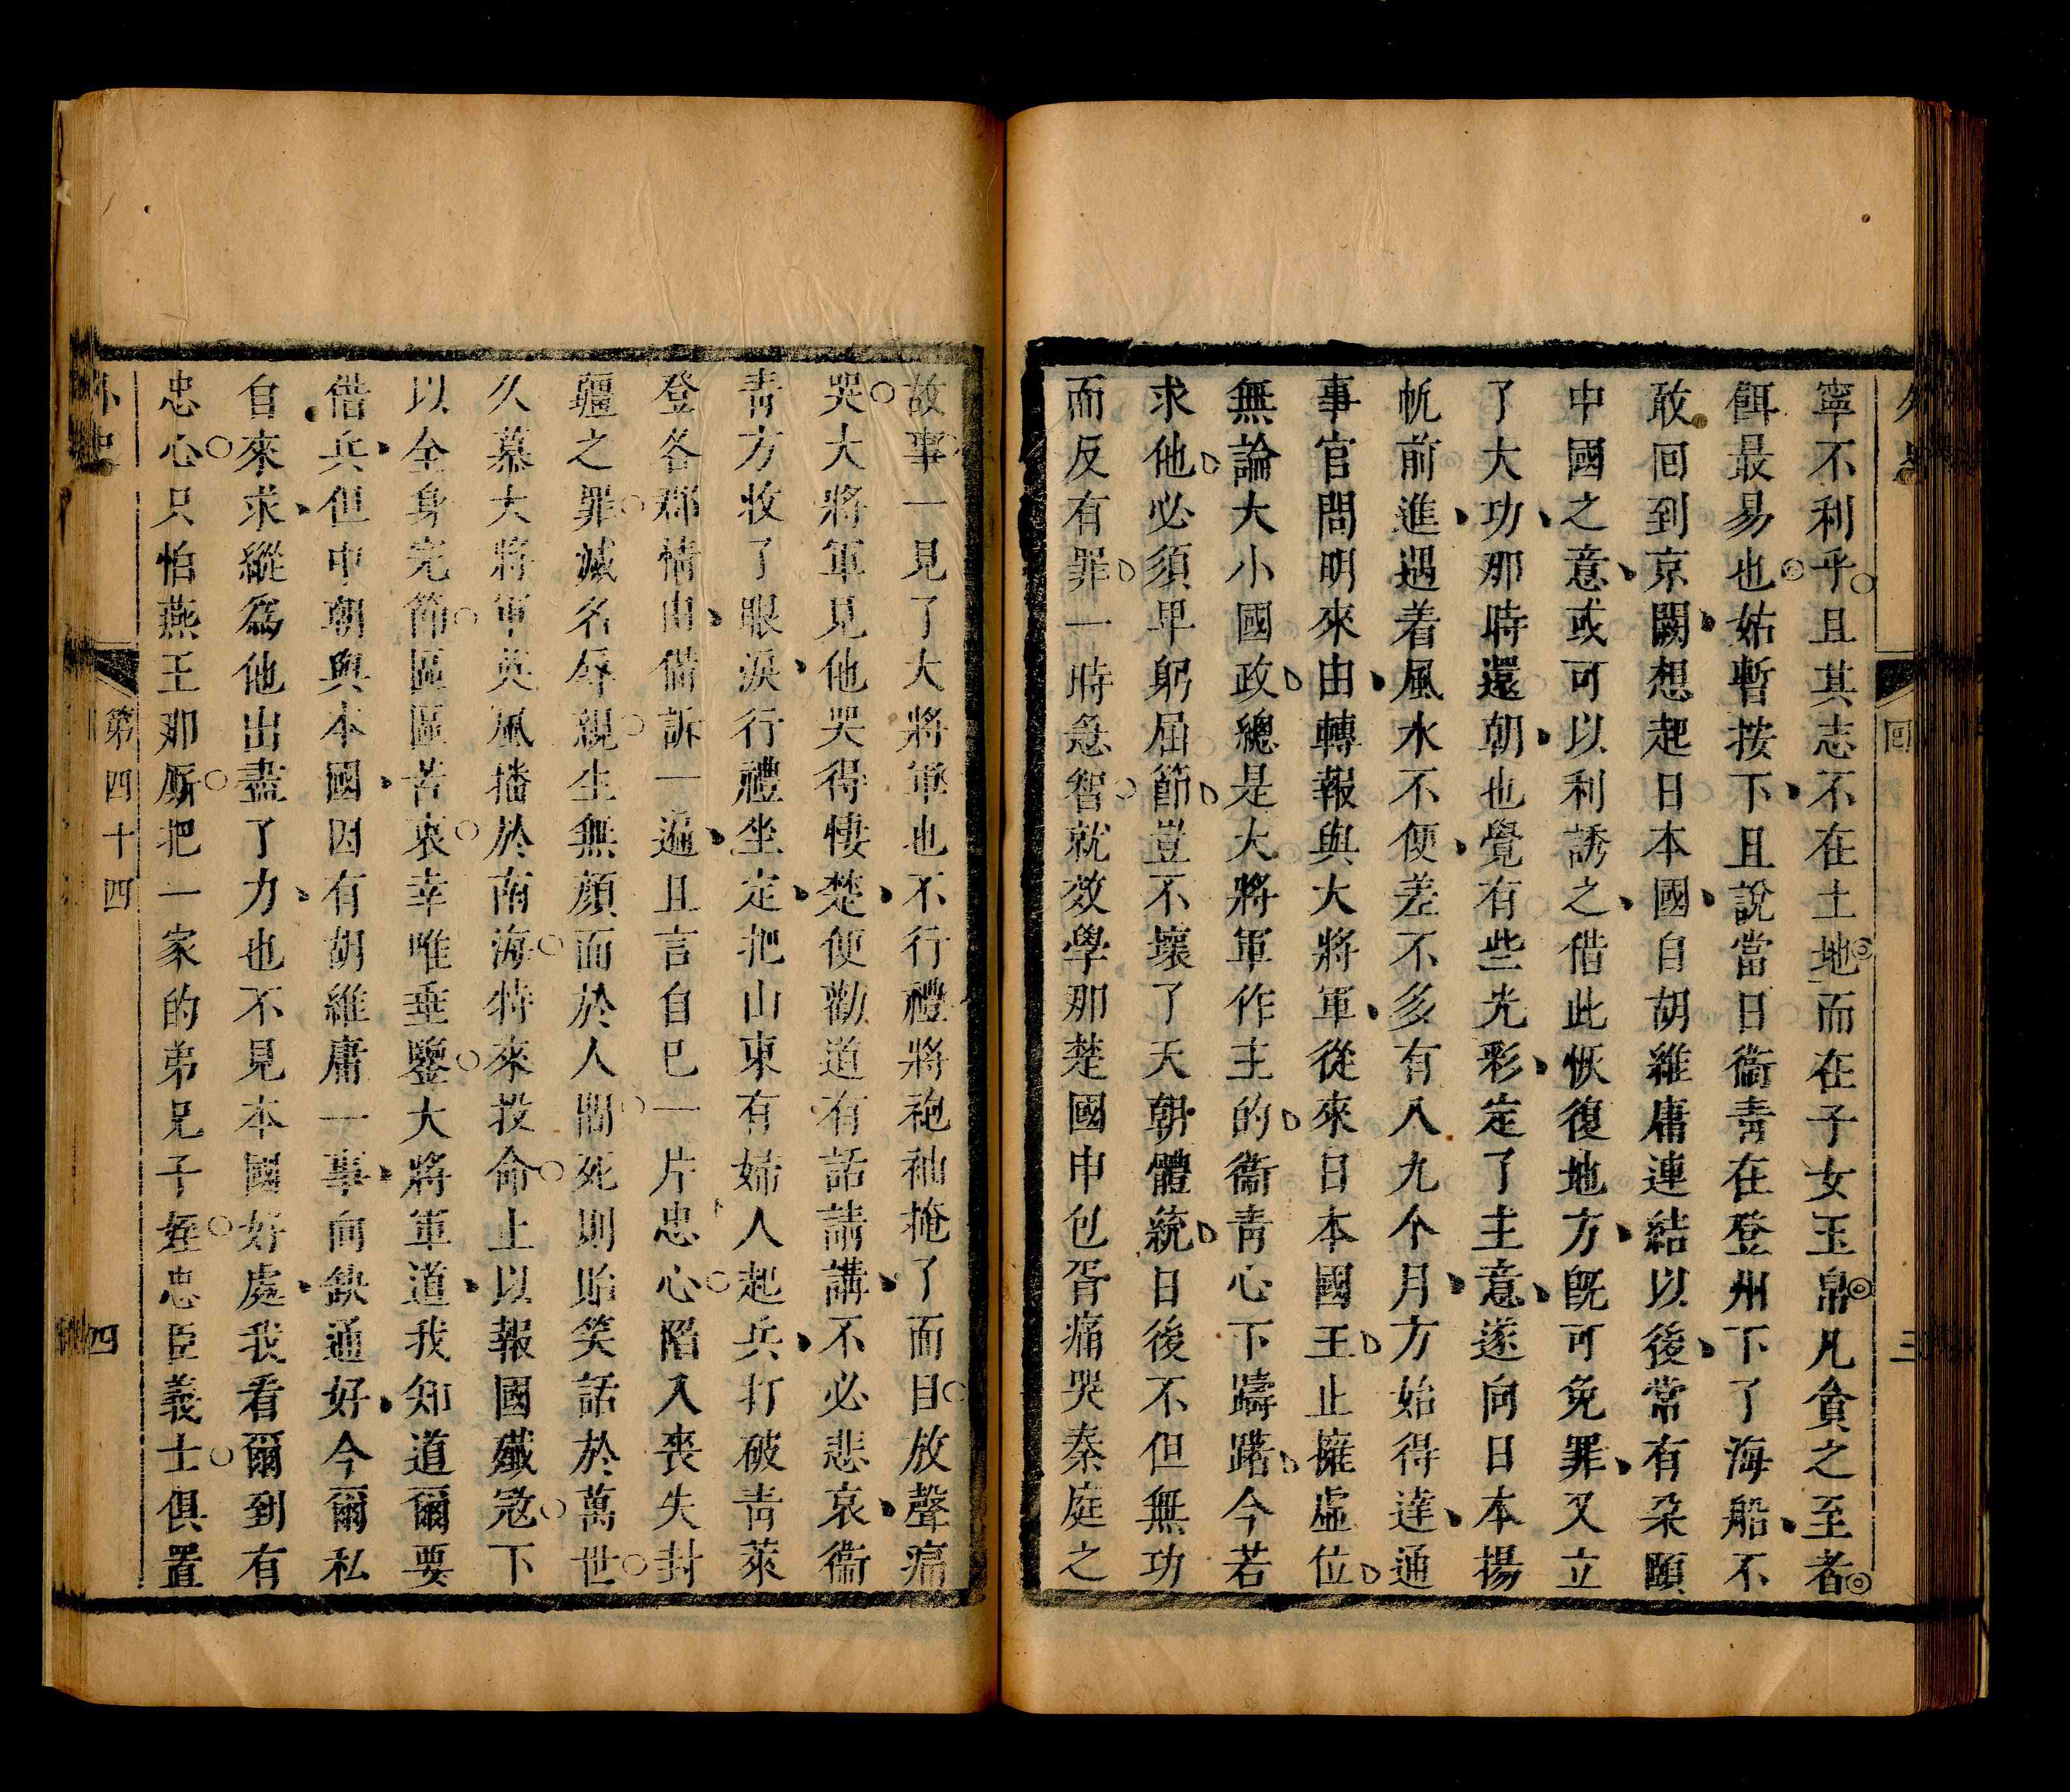 寧不利乎且其志不在土地而在子女玉帛凡貪之至者
餌最易也姑暫按下且說當日衞青在登州下了海船不
敢囘到京闕想起日本國自胡維庸連結以後常有朶頤
中國之意或可以利誘之借此恢復地方旣可免罪又立
了大功那時還朝也覺有些光彩定了主意遂向日本揚
帆前進遇着風水不便差不多有八九个月方始得達通
事官問明來由轉報與大將軍從來日本國王止擁虛位
無論大小國政總是大將軍作主的衞青心下躊躇今若
求他必須早躬屈節豈不壞了天朝體統日後不但無功
而反有罪一時急智就效學那楚國申包胥痛哭秦庭之
故事一見了大將軍也不行禮將袍袖掩了而目放聲痛
哭大將軍見他哭得悽楚便勸道有話請講不必悲哀衞
青方收了眼淚行禮坐定把山東有婦人起兵打破青萊
登各郡情由備訴一遍且言自已一片忠心陷入喪失封
疆之罪滅名辱親生無顏面於人間死則貽笑話於萬世
久慕大將軍英風播於南海特來投命上以報國殲宼下
以全身完節區區苦衷幸唯垂鑒大將軍道我知道爾要
借兵但中朝與本國因有胡維庸一事向缺通好今爾私
自來求縱爲他出盡了力也不見本國好處我看爾到有
忠心只怕燕王那厮把一家的弟兄子姪忠臣義士俱置
外史
第四十四
四